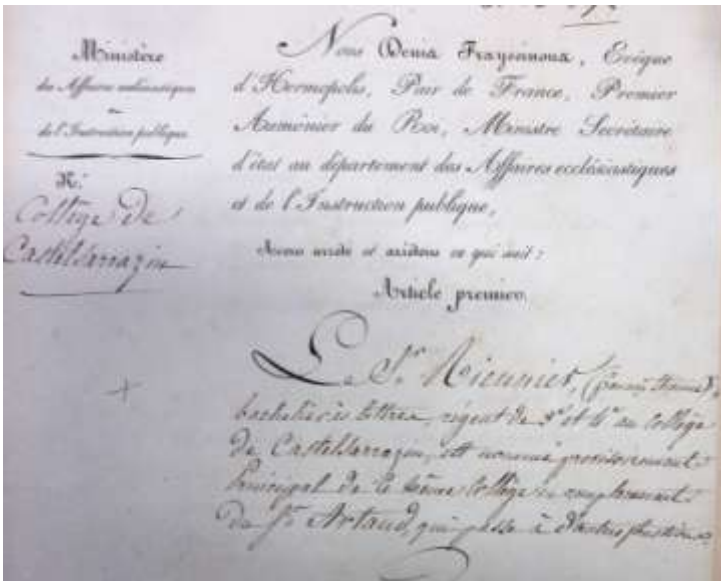 Ministère
des Affaires ecclésiastiques
et
de l'Instruction publique
N.º
Collège de
Castelsarrazin
Nous Denis Frayssinous, Evêque
d'Hermopolis, Pair de France, Premier
Aumônier du Roi, Ministre Secrétaire
d'état au département des Affaires ecclésiastiques
et de l'Instruction publique,
Avons arrêté et arrêtons ce qui suit :
Article premier.
Le Sr.
bachelier ès lettres, régent de 3e et 4e au Collège
de Castelsarrazin, est nommé provisoirement
Principal de le même Collège en remplacement
de Sr. Artaud, qui passe à d'autres fonctions.